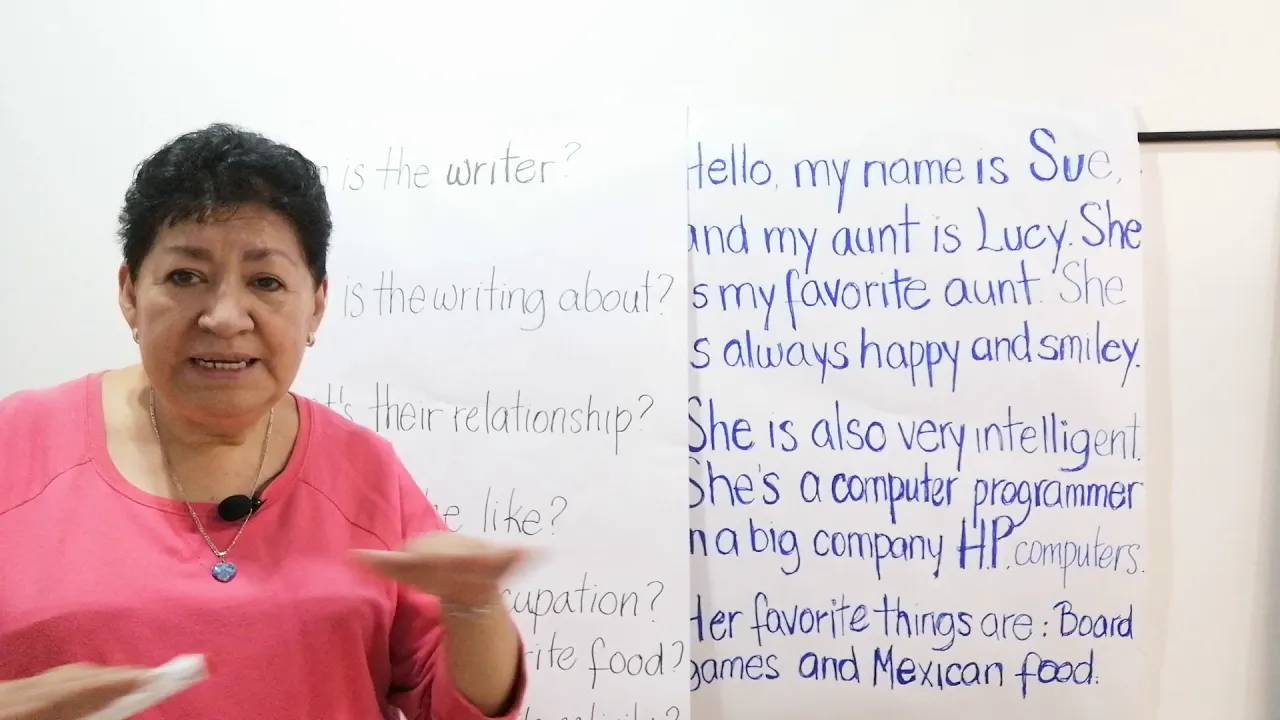 is the writer?
is the writing about?
their relationship?
like?
food?
Hello, my name is Sue,
and my aunt is Lucy. She
s my favorite aunt. She
s always happy and smiley.
She is also very intelligent.
She's a computer programmer
n a big company H.P. computers.
Her favorite things are: Board
games and Mexican food.